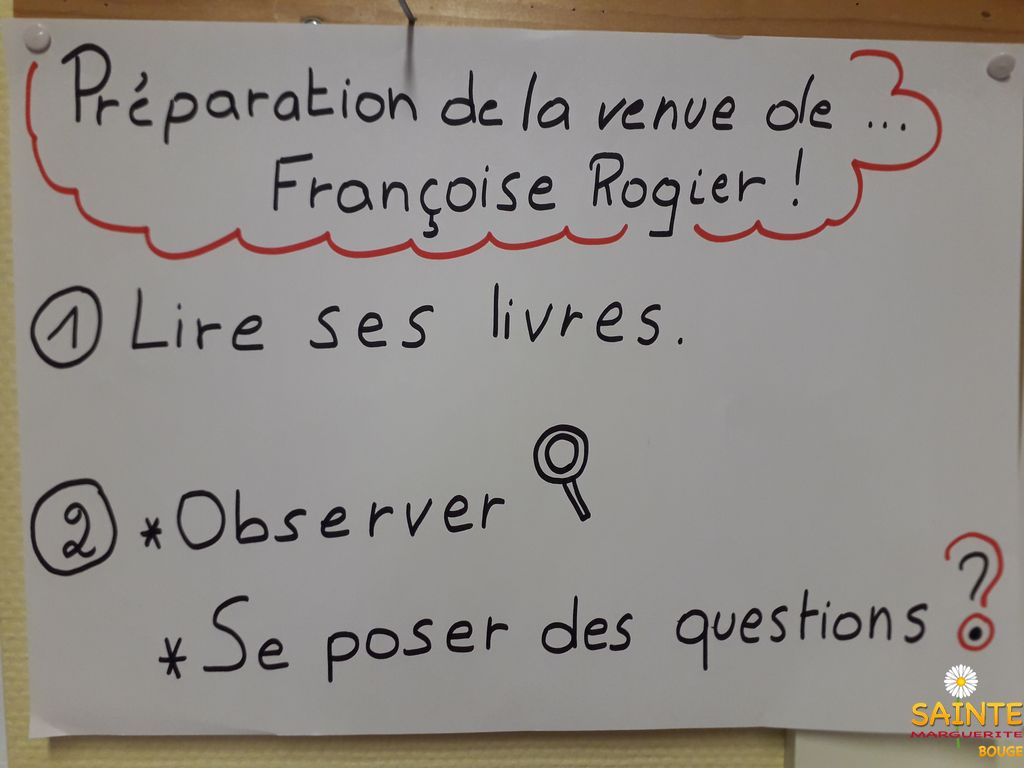 Préparation de la venue de ...
Françoise Rogier !
1 Lire ses livres.
2 * Observer
* Se poser des questions ?
SAINTE
MARGUERITE
BOUGE